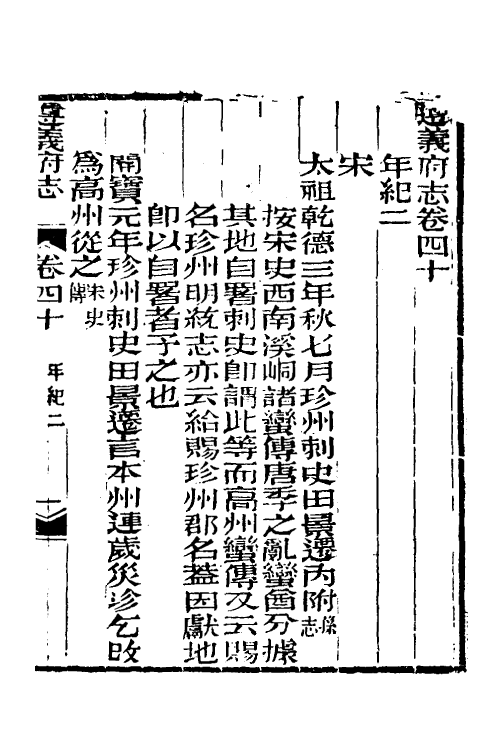 遵義府志卷四十
年紀二
宋
太祖乾德三年秋七月珍州刺史田景遷內附
按宋史西南溪峒諸蠻傳唐季之亂蠻酋分據
其地自署刺史卽謂此等而高州蠻傳又云賜
名珍州明統志亦云給賜珍州郡名葢因獻地
卽以自署者予之也
開寶元年珍州刺史田景遷言本州連歲災沴乞改
爲高州從之宋史傳
遵義府志 卷四十 年紀二 一